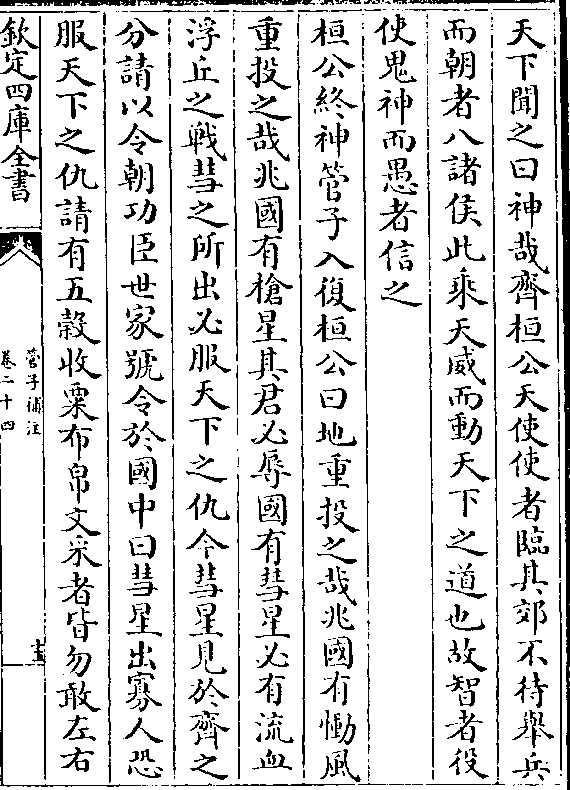 天下聞之曰神哉齊桓公天使使者臨其郊不待舉兵
而朝者八諸侯此乘天威而動天下之道也故智者役
使鬼神而愚者信之
桓公終神管子入復桓公曰地重投之哉兆國有慟風
重投之哉兆國有槍星其君必辱國有彗星必有流血
浮丘之戰彗之所出必服天下之仇今彗星見於齊之
分請以令朝功臣世家號令於國中曰彗星出寡人恐
服天下之仇請有五穀收粟布帛文采者皆勿敢左右
欽定四庫全書
管子補注
卷二十四